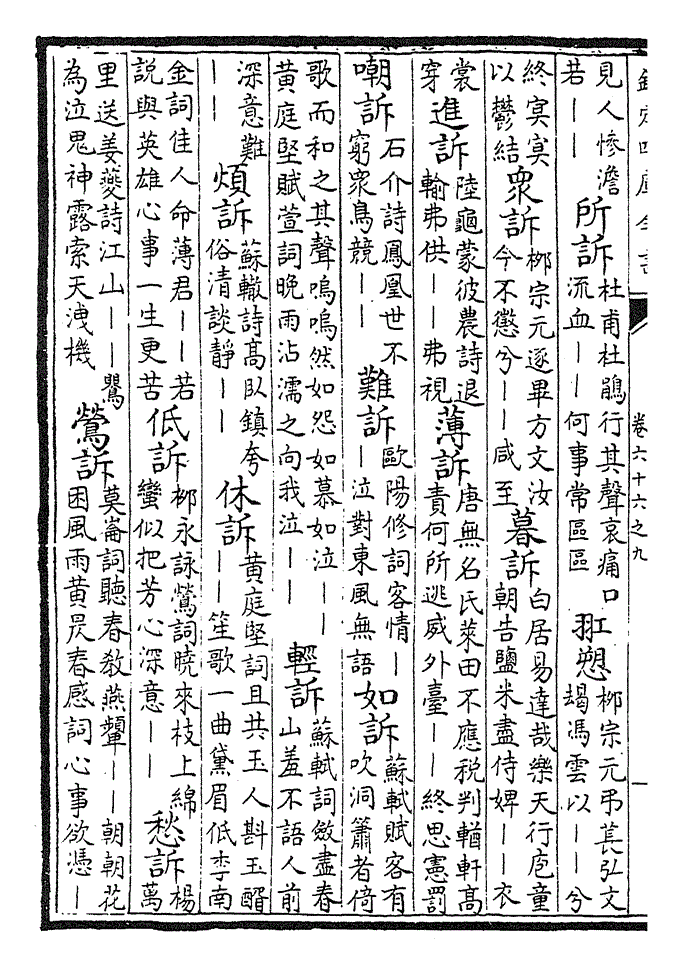 欽定四庫全書 卷六十六之九 一
見人慘澹若—— 所訴 杜甫杜鵑行其聲哀痛口流血——何事常區區 羾愬 柳宗元弔萇弘文朅馮雲以——兮
終冥冥以鬱結 衆訴 栁宗元逐畢方文汝今不懲兮——咸至 暮訴 白居易達哉樂天行庖童朝告鹽米盡侍婢——衣
裳穿 進訴 陸龜蒙彼農詩退輸弗供——弗視 薄訴 唐無名氏萊田不應税判輶軒高責何所逃威外臺——終思憲罰
嘲訴 石介詩鳳凰世不窮衆鳥競—— 難訴 歐陽修詞客情——泣對東風無語 如訴 蘇軾賦客有吹洞簫者倚
歌而和之其聲嗚嗚然如怨如慕如泣——黄庭堅賦萱詞晚雨沾濡之向我泣—— 輕訴 蘇軾詞斂盡春山羞不語人前
深意難—— 煩訴 蘇轍詩高臥鎮夸俗清談靜—— 休訴 黄庭堅詞且共玉人斟玉醑——笙歌一曲黛眉低李南
金詞佳人命薄君——若説與英雄心事一生更苦 低訴 栁永詠鶯詞曉來枝上綿蠻似把芳心深意—— 愁訴 楊萬
里送姜夔詩江山——鶯為泣鬼神露索天洩機 鶯訴 莫崙詞聽春教燕顰——朝朝花困風雨黄炅春感詞心事欲憑—